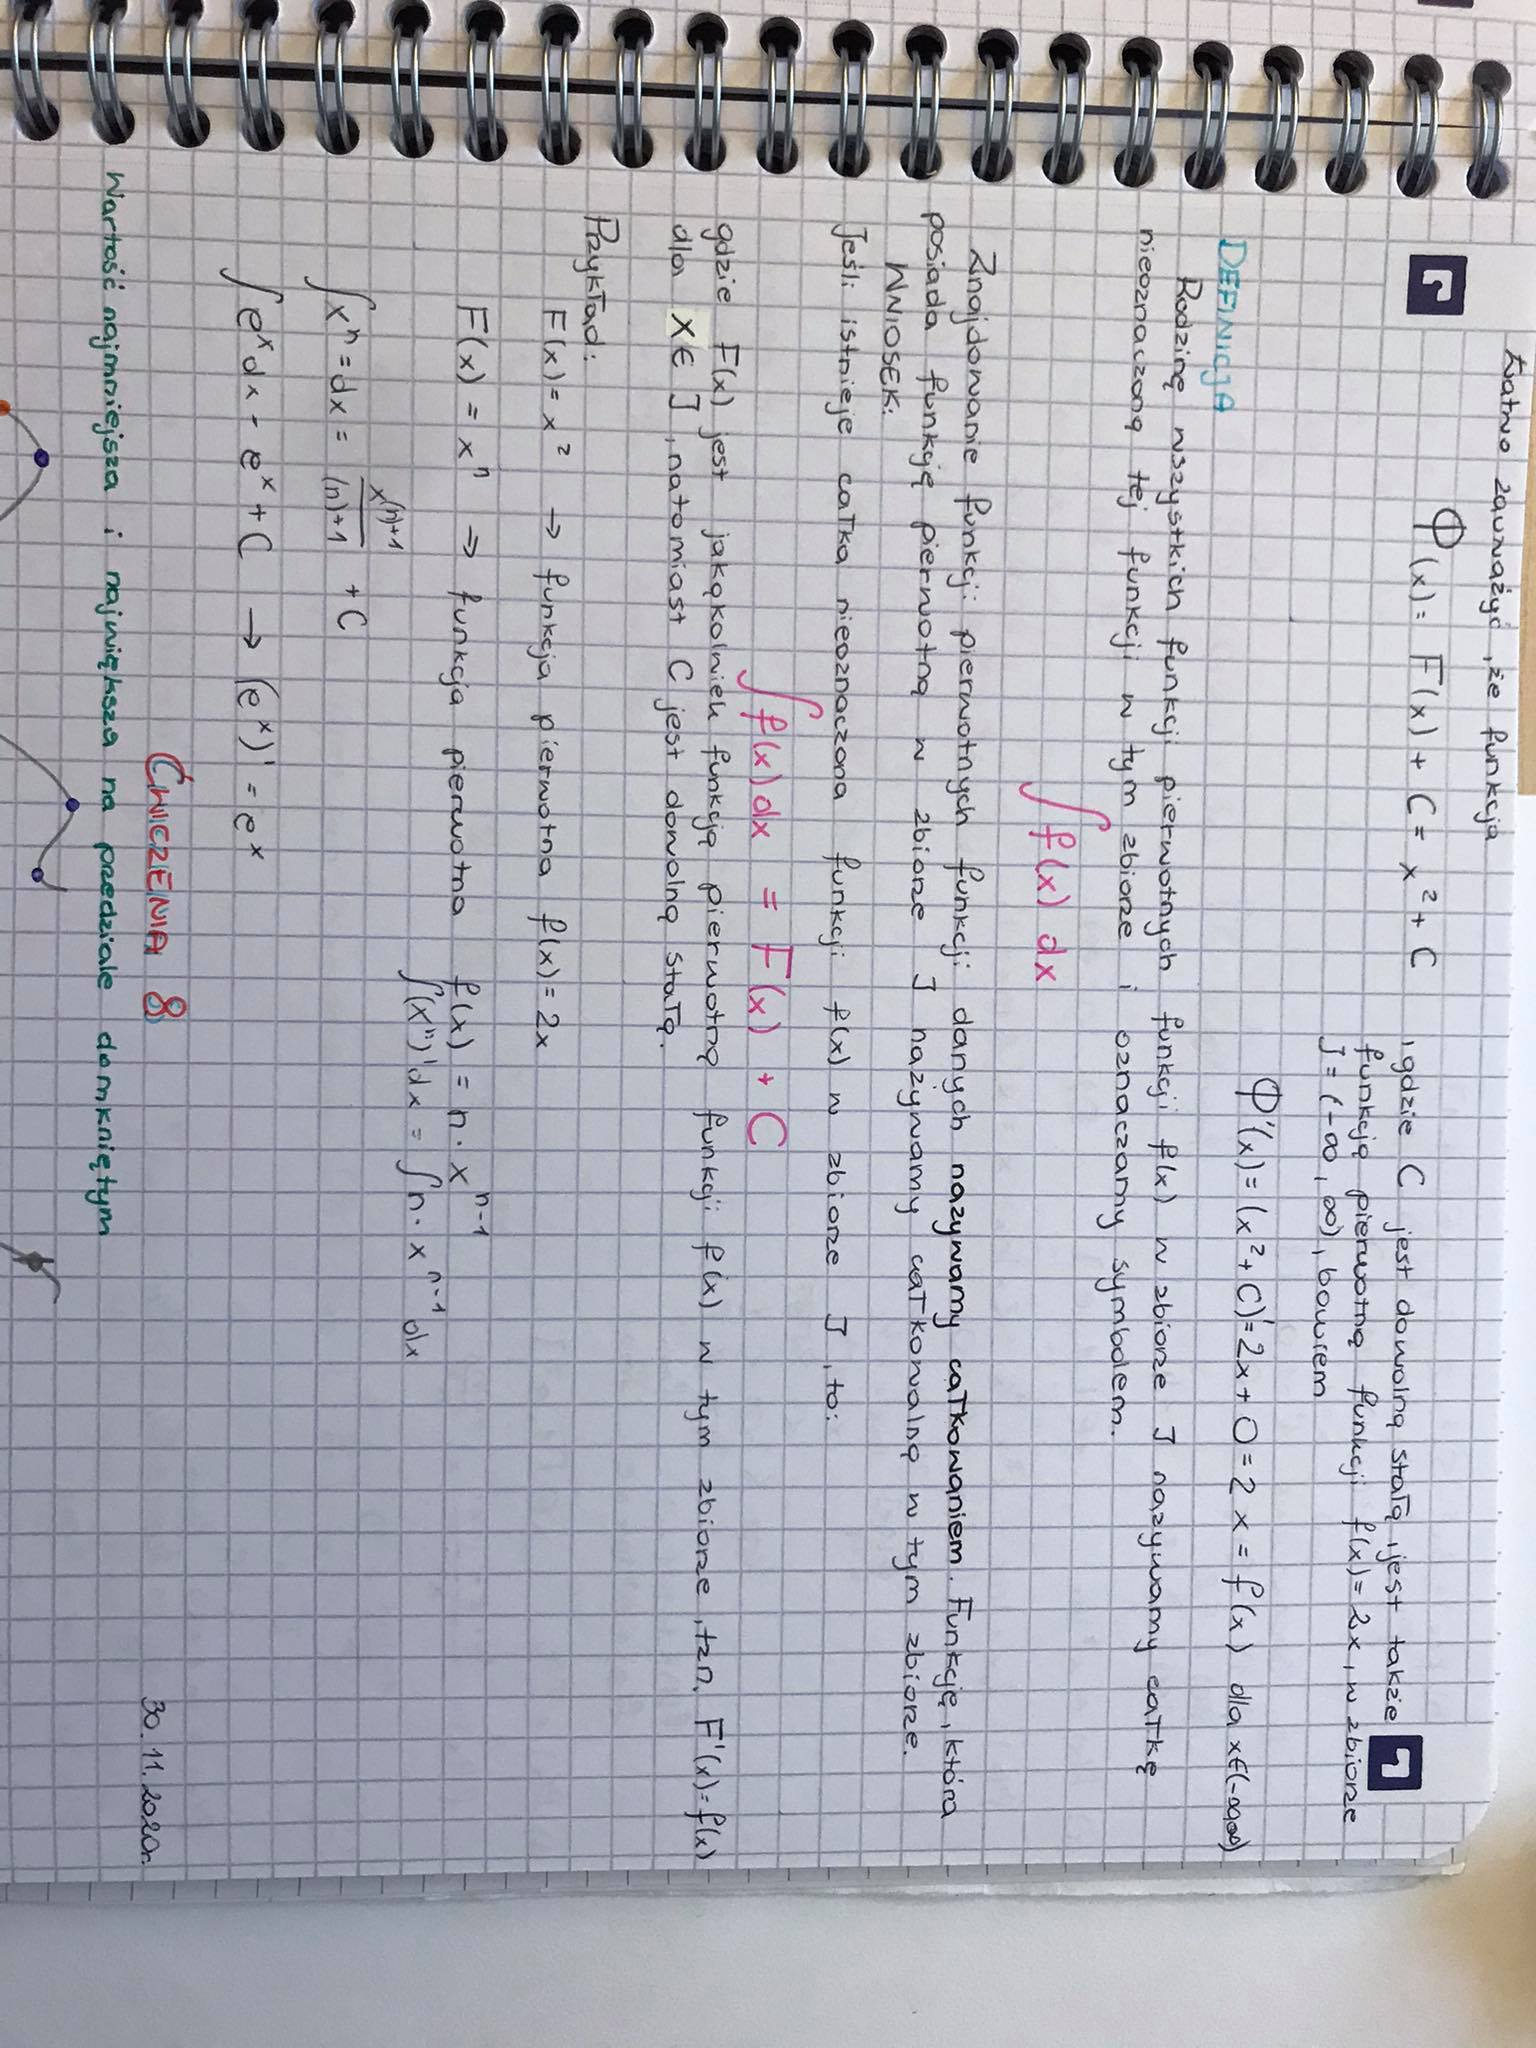 Łatwo zauważyć, że funkcja
Φ(x) = F(x) + C = x² + C
, gdzie C jest dowolną stałą, jest także
funkcją pierwotną funkcji f(x) = 2x, w zbiorze
J = (-∞, ∞), bowiem
Φ'(x) = (x² + C)' = 2x + 0 = 2x = f(x) dla x∈(-∞,∞)
DEFINICJA
Rodzinę wszystkich funkcji pierwotnych funkcji f(x) w zbiorze J nazywamy całkę
nieoznaczoną tej funkcji w tym zbiorze i oznaczamy symbolem.
∫ f(x) dx
Znajdowanie funkcji pierwotnych funkcji danych nazywamy całkowaniem. Funkcję, która
posiada funkcję pierwotną w zbiorze J nazywamy całkowalną w tym zbiorze.
WNIOSEK:
Jeśli istnieje całka nieoznaczona funkcji f(x) w zbiorze J, to:
∫ f(x) dx = F(x) + C
gdzie F(x) jest jakąkolwiek funkcją pierwotną funkcji f(x) w tym zbiorze, tzn. F'(x) = f(x)
dla x ∈ J, natomiast C jest dowolną stałą.
Przykład:
F(x) = x² → funkcja pierwotna f(x) = 2x
F(x) = xⁿ → funkcja pierwotna f(x) = n · xⁿ⁻¹
∫(xⁿ)'dx = ∫ n · xⁿ⁻¹ dx
∫ xⁿ = dx = x⁽ⁿ⁾⁺¹ / (n)+1 + C
∫ eˣ dx = eˣ + C → (eˣ)' = eˣ
ĆWICZENIA 8
30.11.2020r.
Wartość najmniejsza i największa na przedziale domkniętym